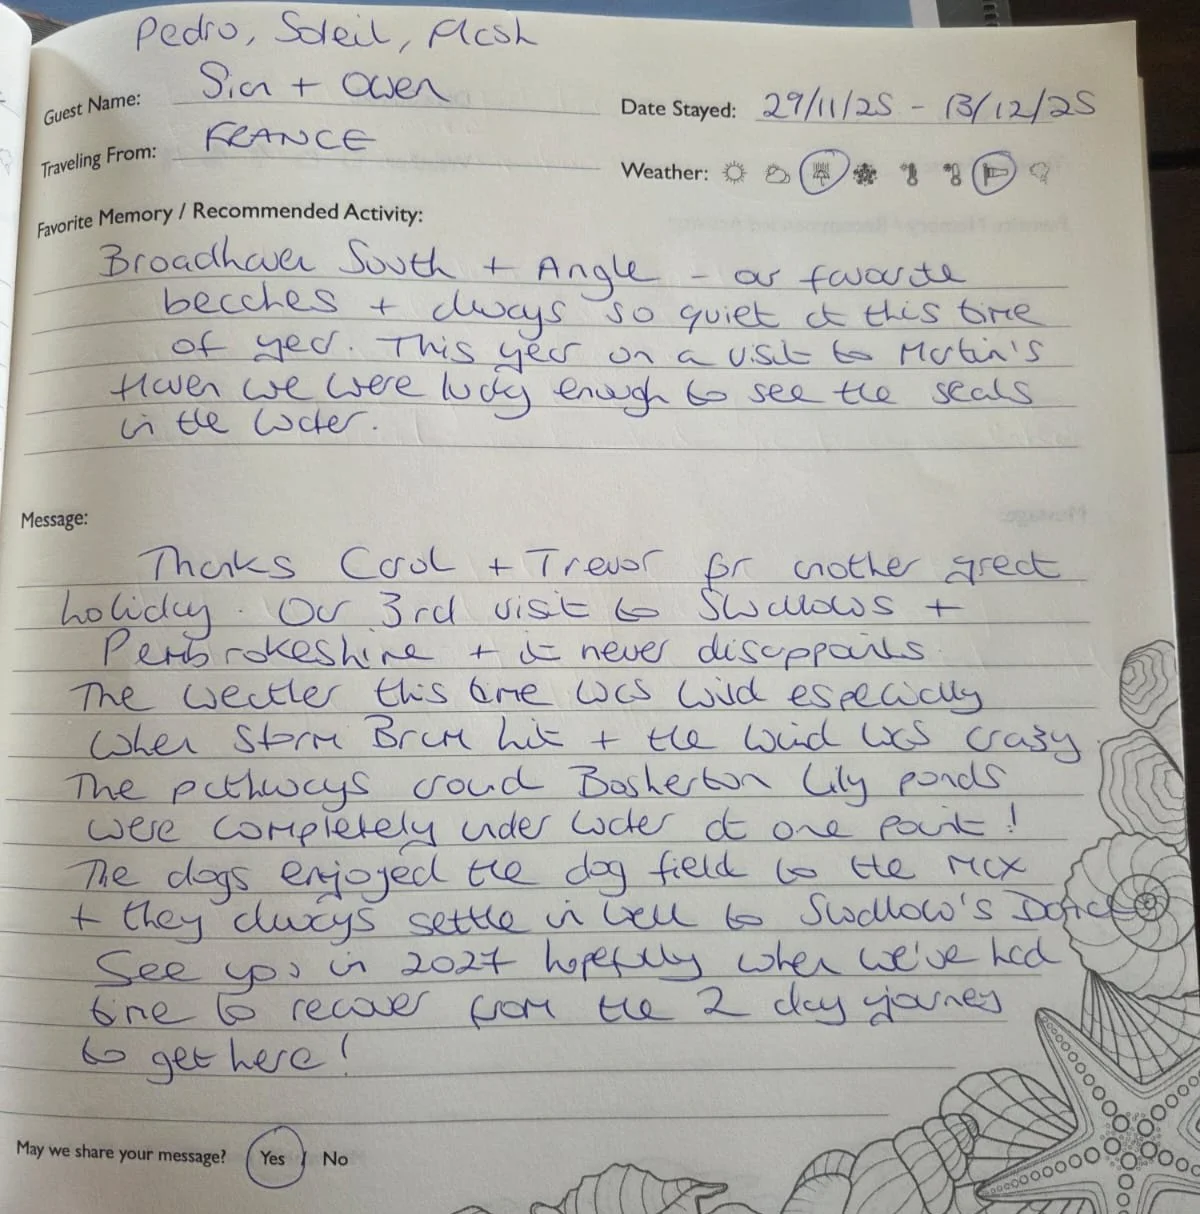 Pedro, Soleil, Flash
Guest Name: Sian + Owen
Date Stayed: 29/11/25 - 13/12/25
Traveling From: FRANCE
Weather:
Favorite Memory / Recommended Activity:
Broadhaven South + Angle - our favourite
beaches + always so quiet at this time
of year. This year on a visit to Martin's
Haven we were lucky enough to see the seals
in the water.
Message:
Thanks Carol + Trevor for another great
holiday. Our 3rd visit to Swallows +
Pembrokeshire + it never disappoints.
The weather this time was wild especially
when Storm Bram hit + the wind was crazy
The pathways around Bosherton Lily ponds
were completely under water at one point!
The dogs enjoyed the dog field to the max
+ they always settle in well to Swallow's Dance
See you in 2027 hopefully when we've had
time to recover from the 2 day journey
to get here!
May we share your message? Yes / No